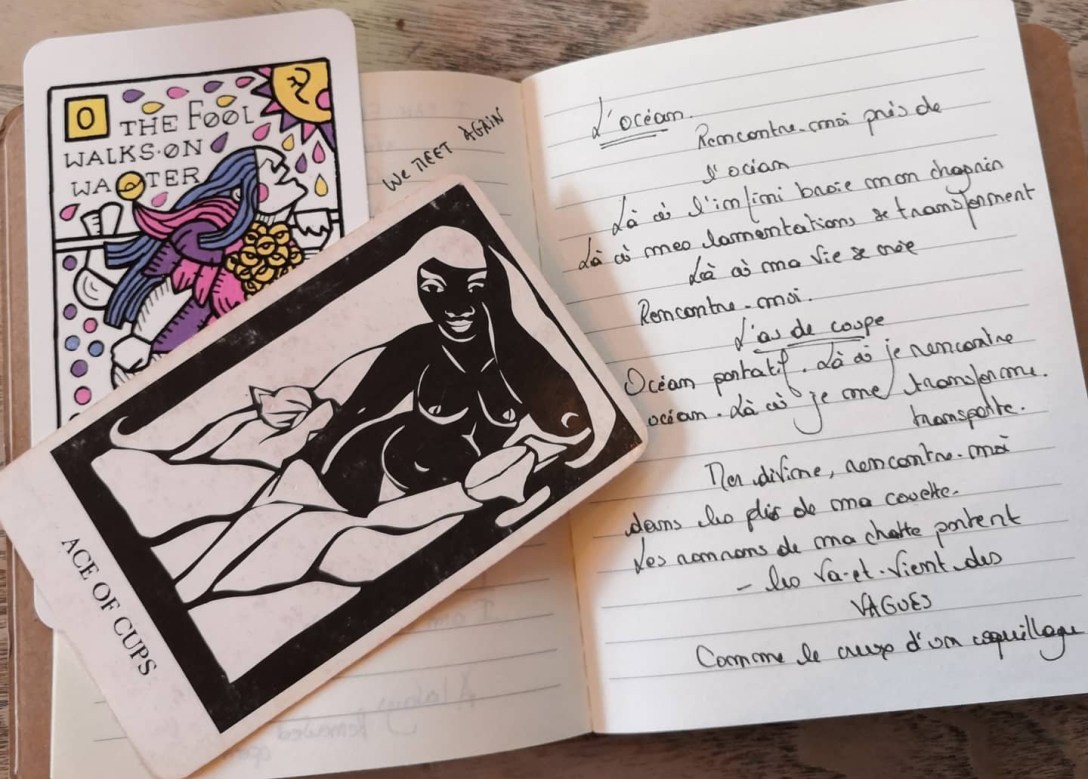 0
THE FOOL
WALKS·ON
WATER
WE MEET AGAIN
ACE OF CUPS
L'océan.
Rencontre-moi près de
l'océan
Là où l'infini broie mon chagrin
Là où mes lamentations se transforment
Là où ma vie se noie
Rencontre-moi.
L'as de coupe
Océan portatif. Là où je rencontre
océan. Là où je me transforme.
transporte.
Mer divine, rencontre-moi
dans les plis de ma couette.
Les ronrons de ma chatte portent
- les va-et-vient des
VAGUES
Comme le creux d'un coquillage